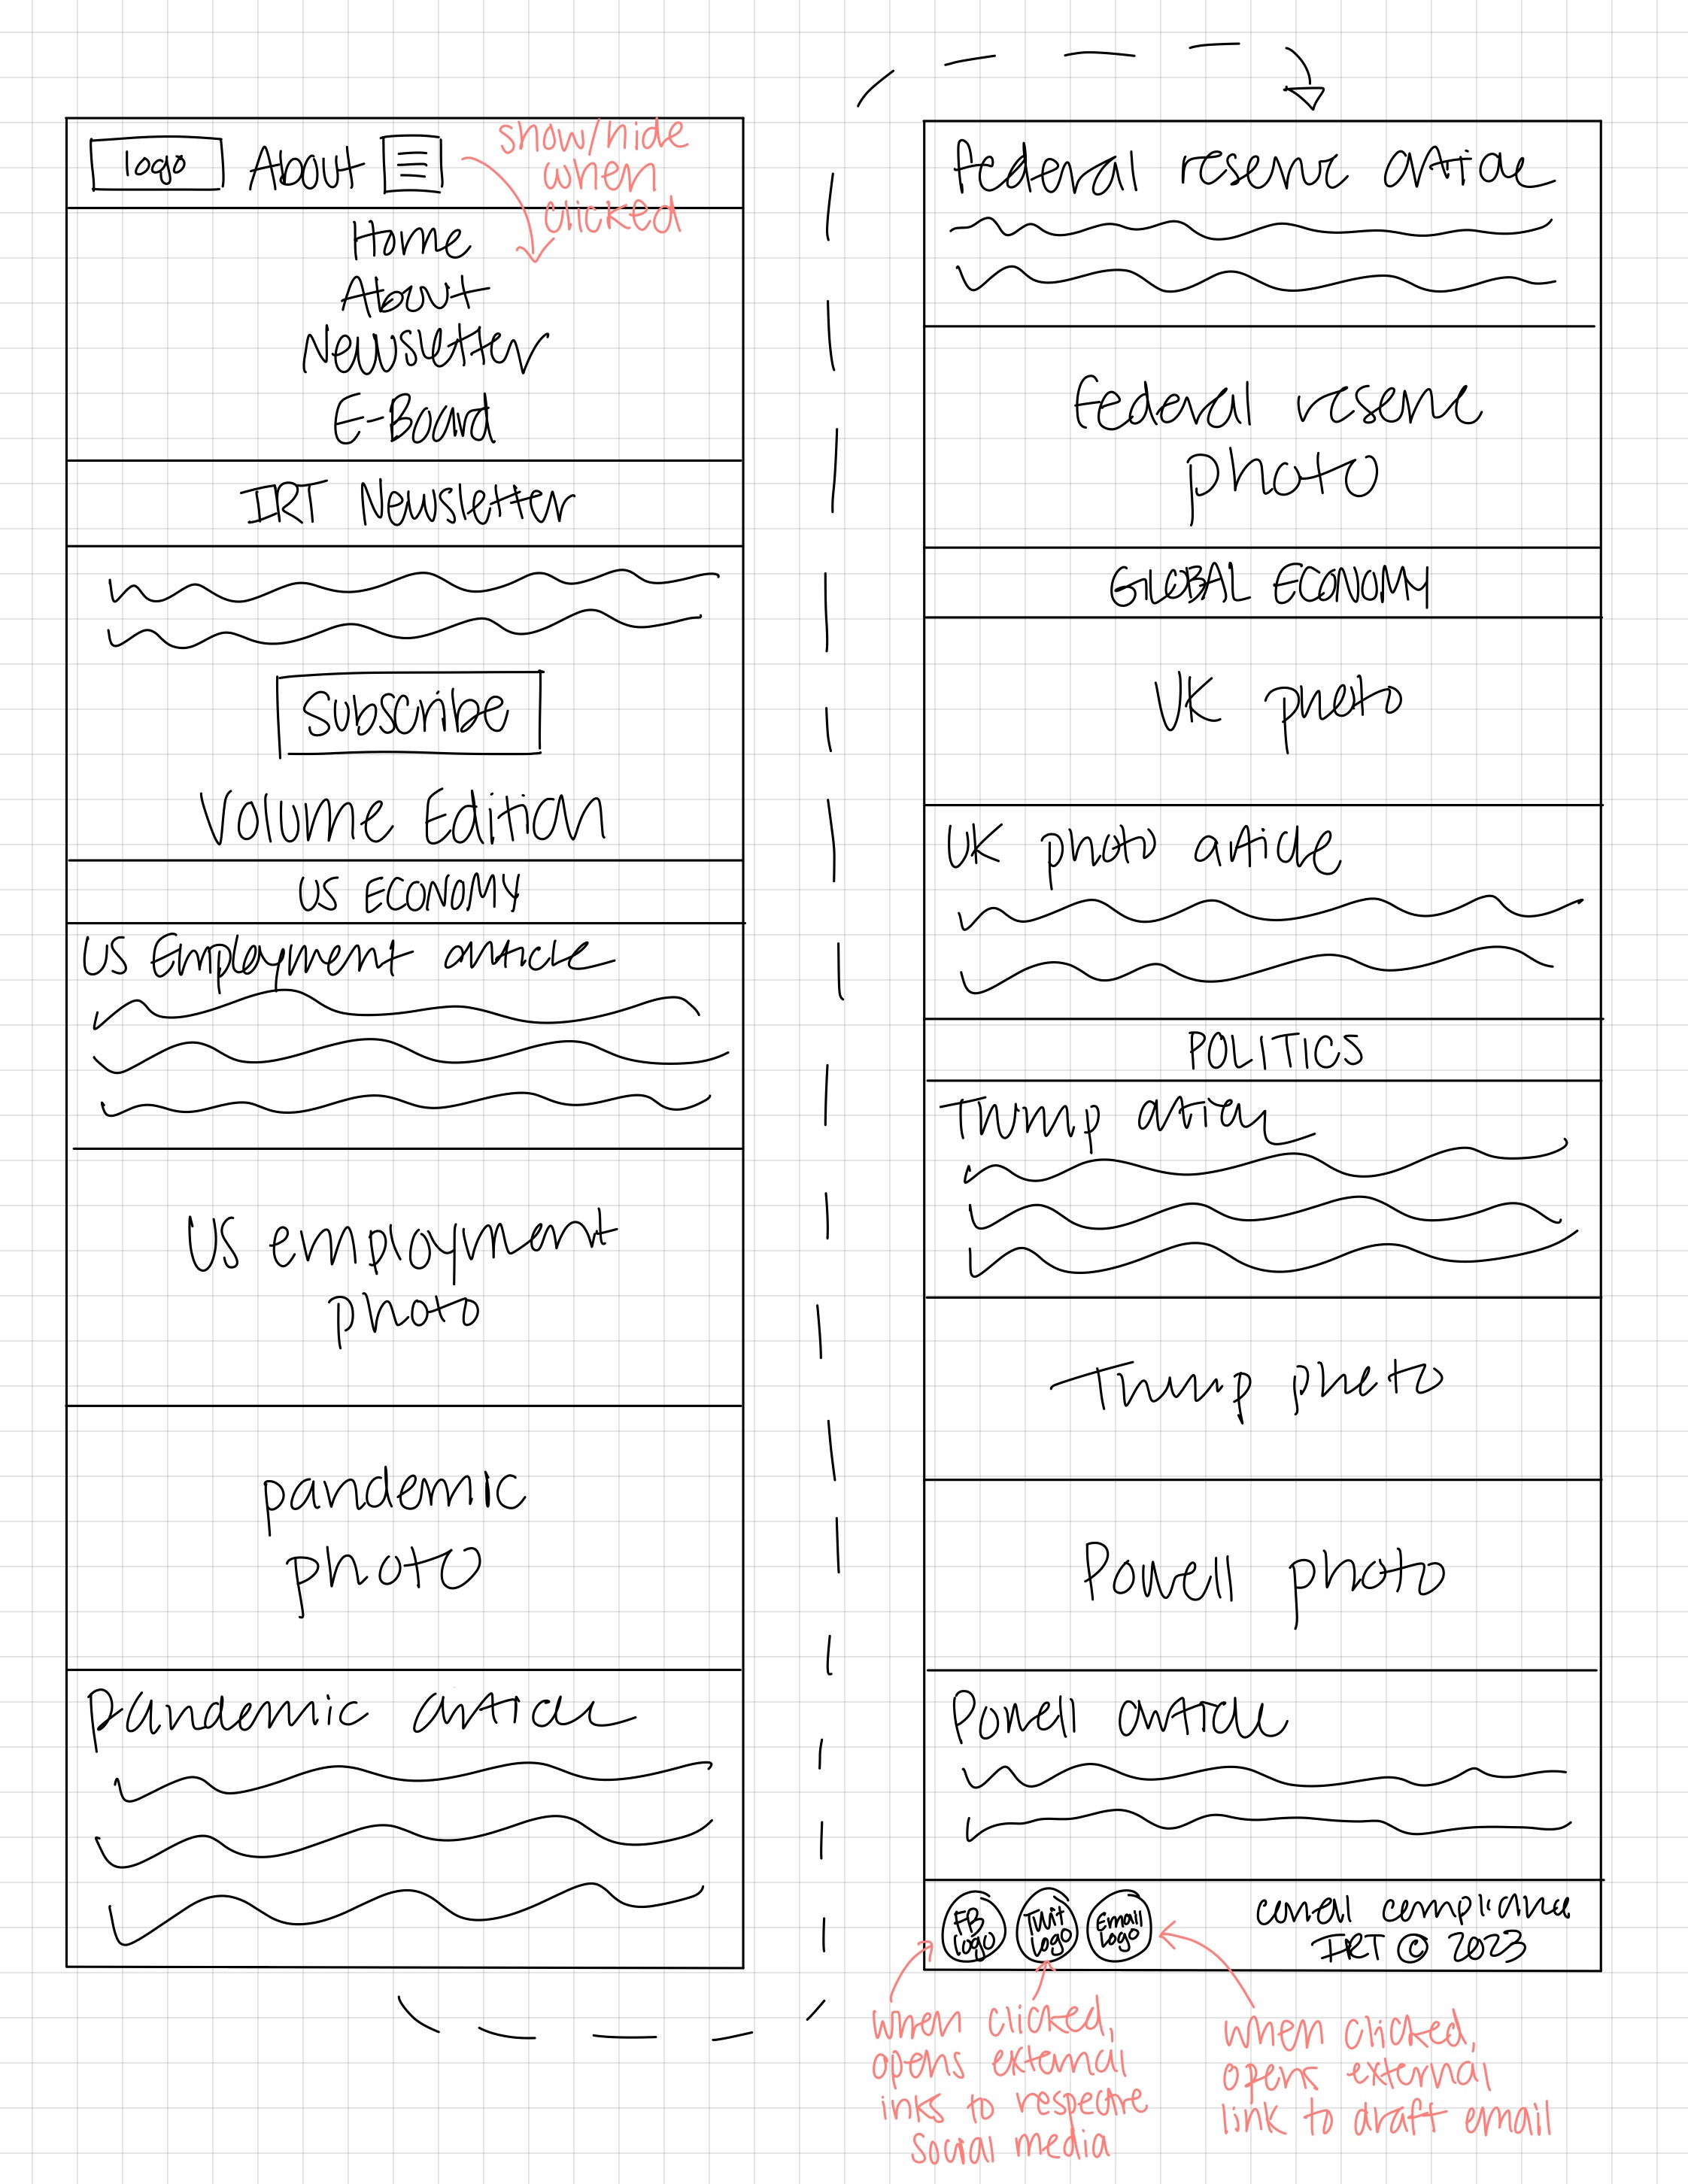 logo About
show/hide
when
clicked
Home
About
Newsletter
E-Board
IRT Newsletter
Subscribe
Volume Edition
US ECONOMY
US Employment article
US employment
photo
pandemic
photo
Pandemic article
federal reserve article
federal reserve
photo
GLOBAL ECONOMY
UK photo
UK photo article
POLITICS
Trump article
Trump photo
Powell photo
Powell article
FB
logo
Twit
logo
Email
logo
compliance
IRT © 2023
when clicked,
opens external
inks to respective
social media
when clicked,
opens external
link to draft email